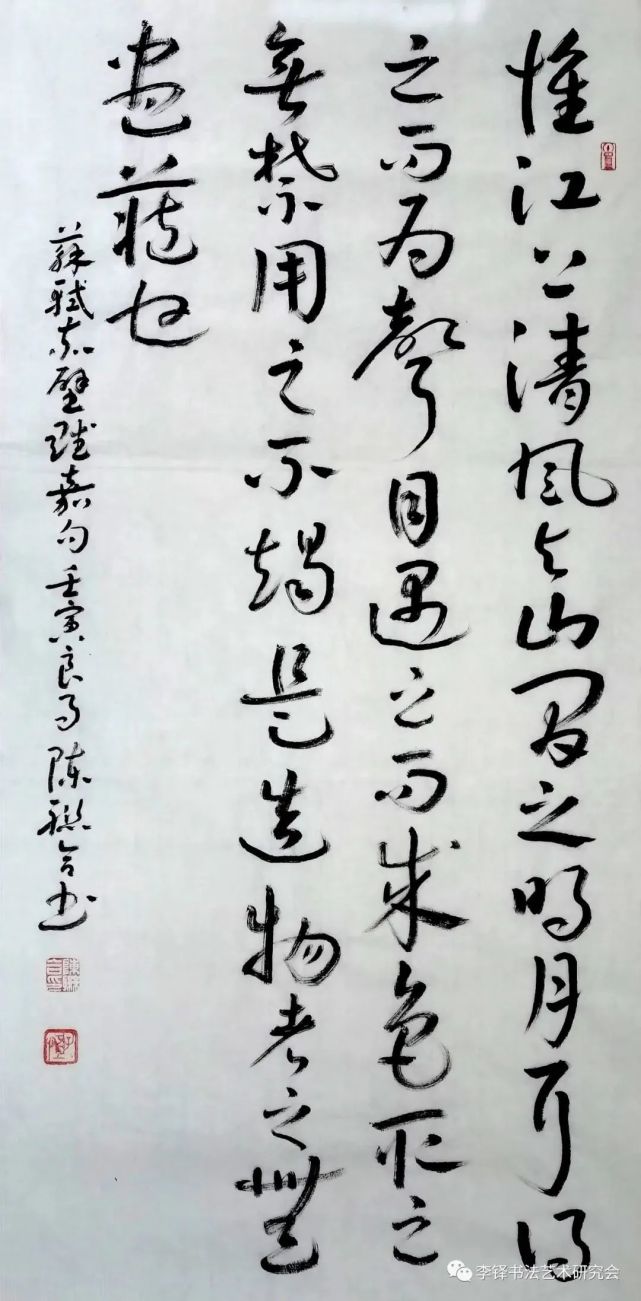 惟江上清風与山間之明月耳得
之而为聲目遇之而成色取之
無禁用之不竭是造物者之無
盡藏也
蘇軾赤壁賦嘉句壬寅良陳聯合书
李铎书法艺术研究会